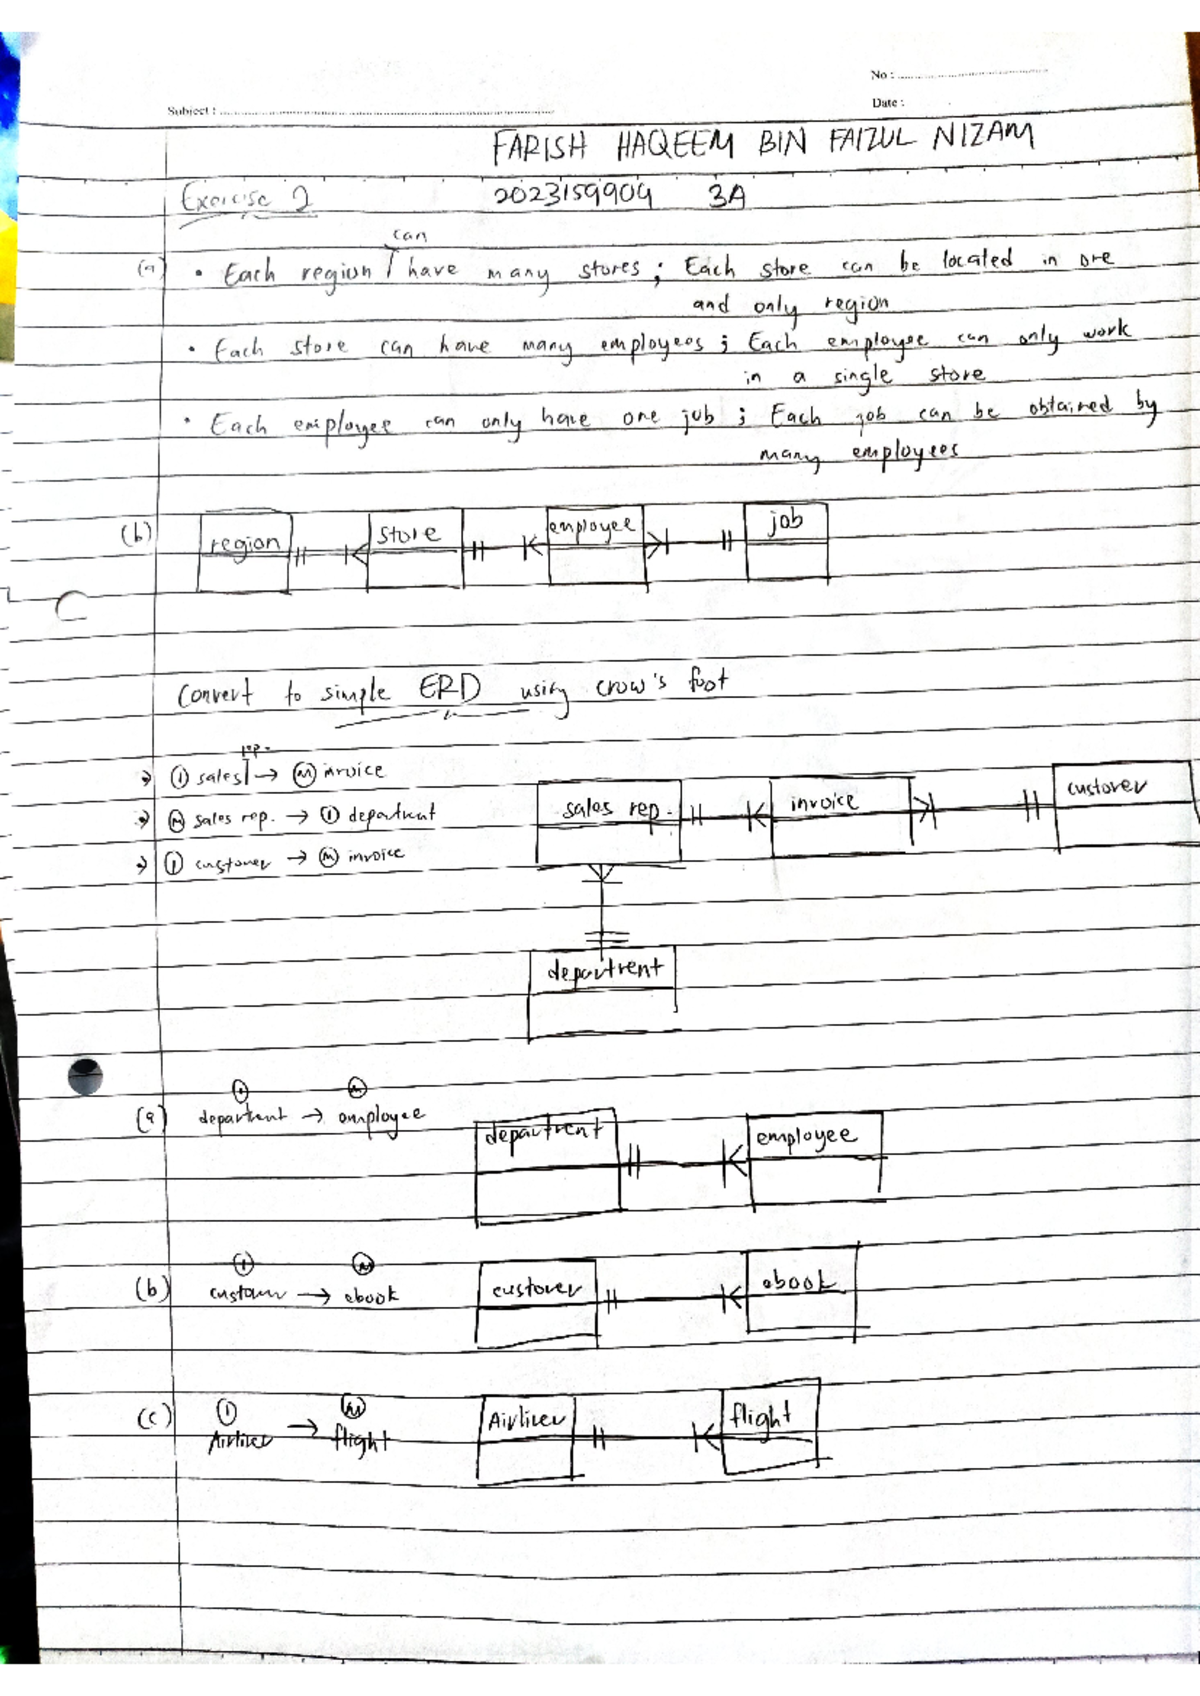 No :
Subject :
Date :
FARISH HAQEEM BIN FAIZUL NIZAM
Exercise 2 2023159904 3A
can
(a) • Each region have many stores ; Each store can be located in one
and only region
• Each store can have many employees ; Each employee can only work
in a single store
• Each employee can only have one job ; Each job can be obtained by
many employees
(b) region store employee job
Convert to simple ERD using crow's foot
rep.
→ ① sales → Ⓜ invoice
→ Ⓜ sales rep. → ① department
→ ① customer → Ⓜ invoice
sales rep. invoice customer
department
① Ⓜ
(a) department → employee
department employee
① Ⓜ
(b) customer → ebook
customer ebook
① Ⓜ
(c) Airliner → flight
Airliner flight